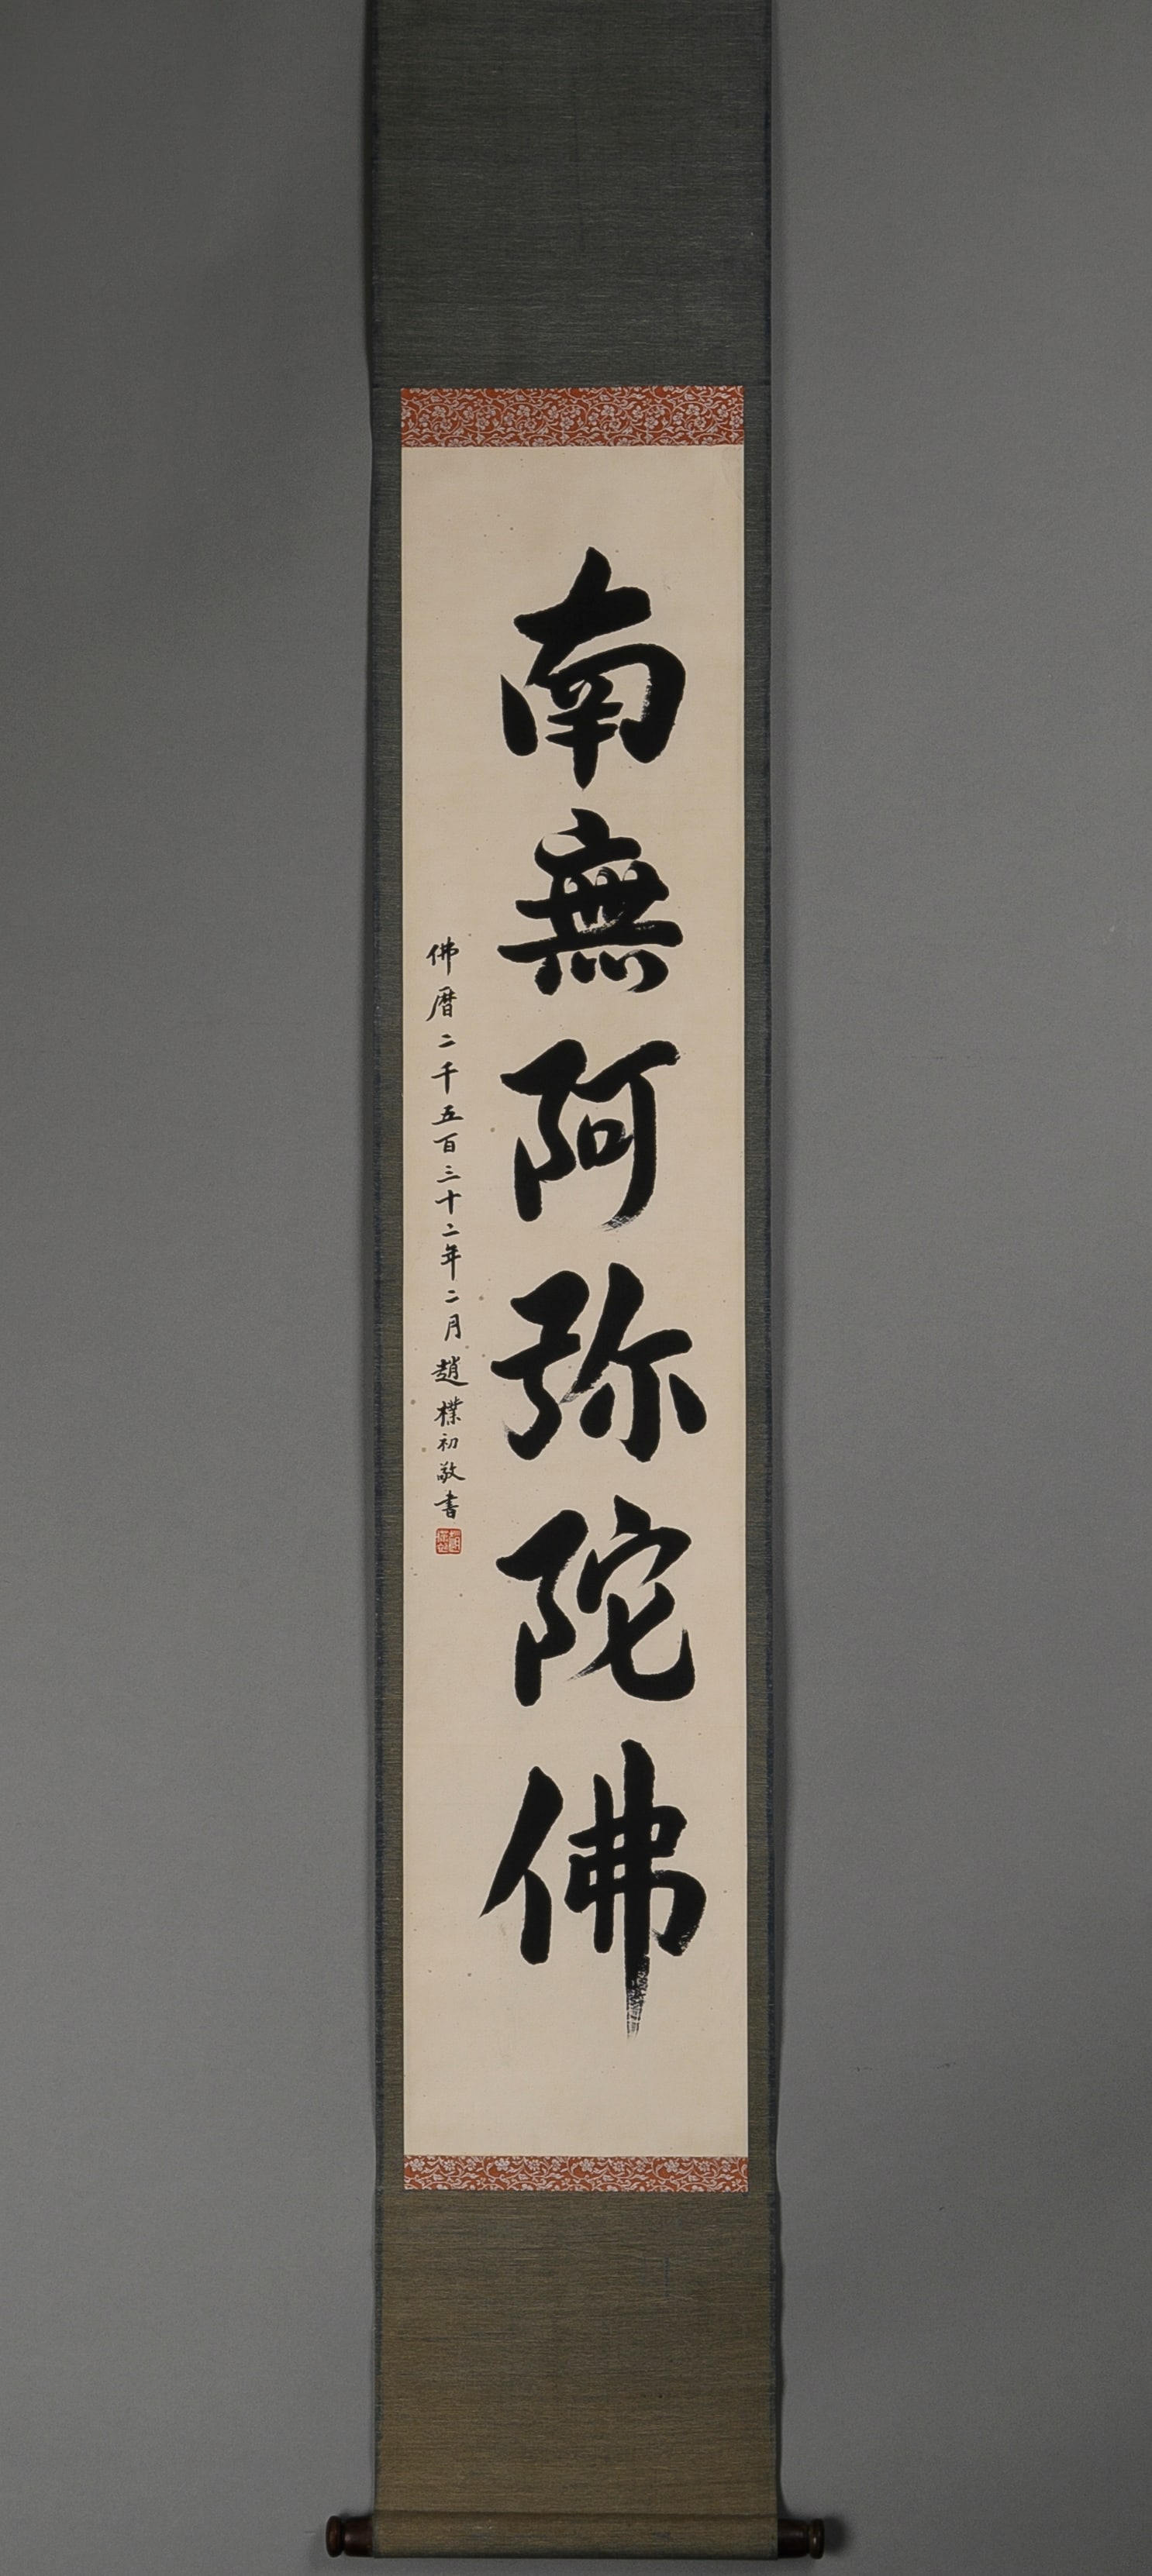 南無阿弥陀佛
佛暦二千五百三十二年二月趙樸初敬書